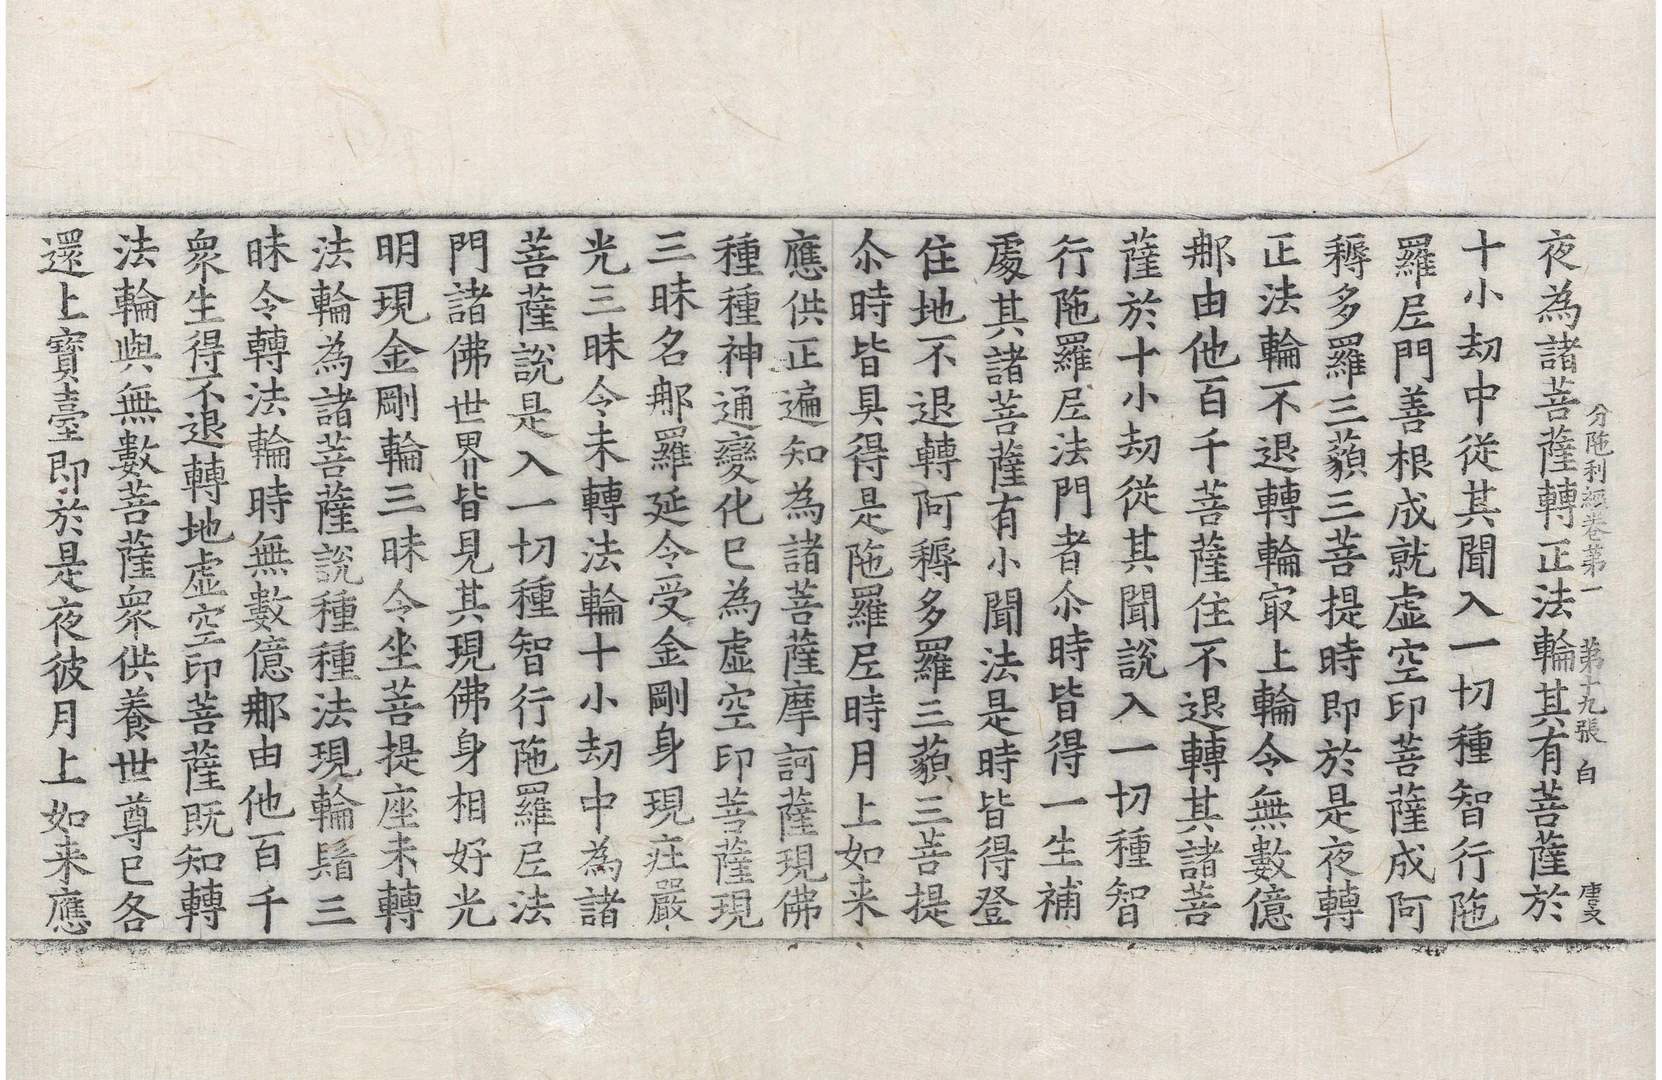 分陁利經卷第一 第十九張 白 唐文
夜為諸菩薩轉正法輪其有菩薩於
十小劫中從其聞入一切種智行陁
羅𡰱門善根成就虛空印菩薩成阿
耨多羅三藐三菩提時即於是夜轉
正法輪不退轉輪㝡上輪令無數億
那由他百千菩薩住不退轉其諸菩
薩於十小劫從其聞說入一切種智
行陁羅𡰱法門者尒時皆得一生補
處其諸菩薩有小聞法是時皆得登
住地不退轉阿耨多羅三藐三菩提
尒時皆具得是陁羅𡰱時月上如来
應供正遍知為諸菩薩摩訶薩現佛
種種神通變化已為虛空印菩薩現
三昧名那羅延令受金剛身現莊嚴
光三昧令未轉法輪十小劫中為諸
菩薩說是入一切種智行陁羅𡰱法
門諸佛世界皆見其現佛身相好光
明現金剛輪三昧令坐菩提座未轉
法輪為諸菩薩說種種法現輪鬘三
昧令轉法輪時無數億那由他百千
衆生得不退轉地虛空印菩薩既知轉
法輪與無數菩薩衆供養世尊已各
還上寶臺即於是夜彼月上如来應